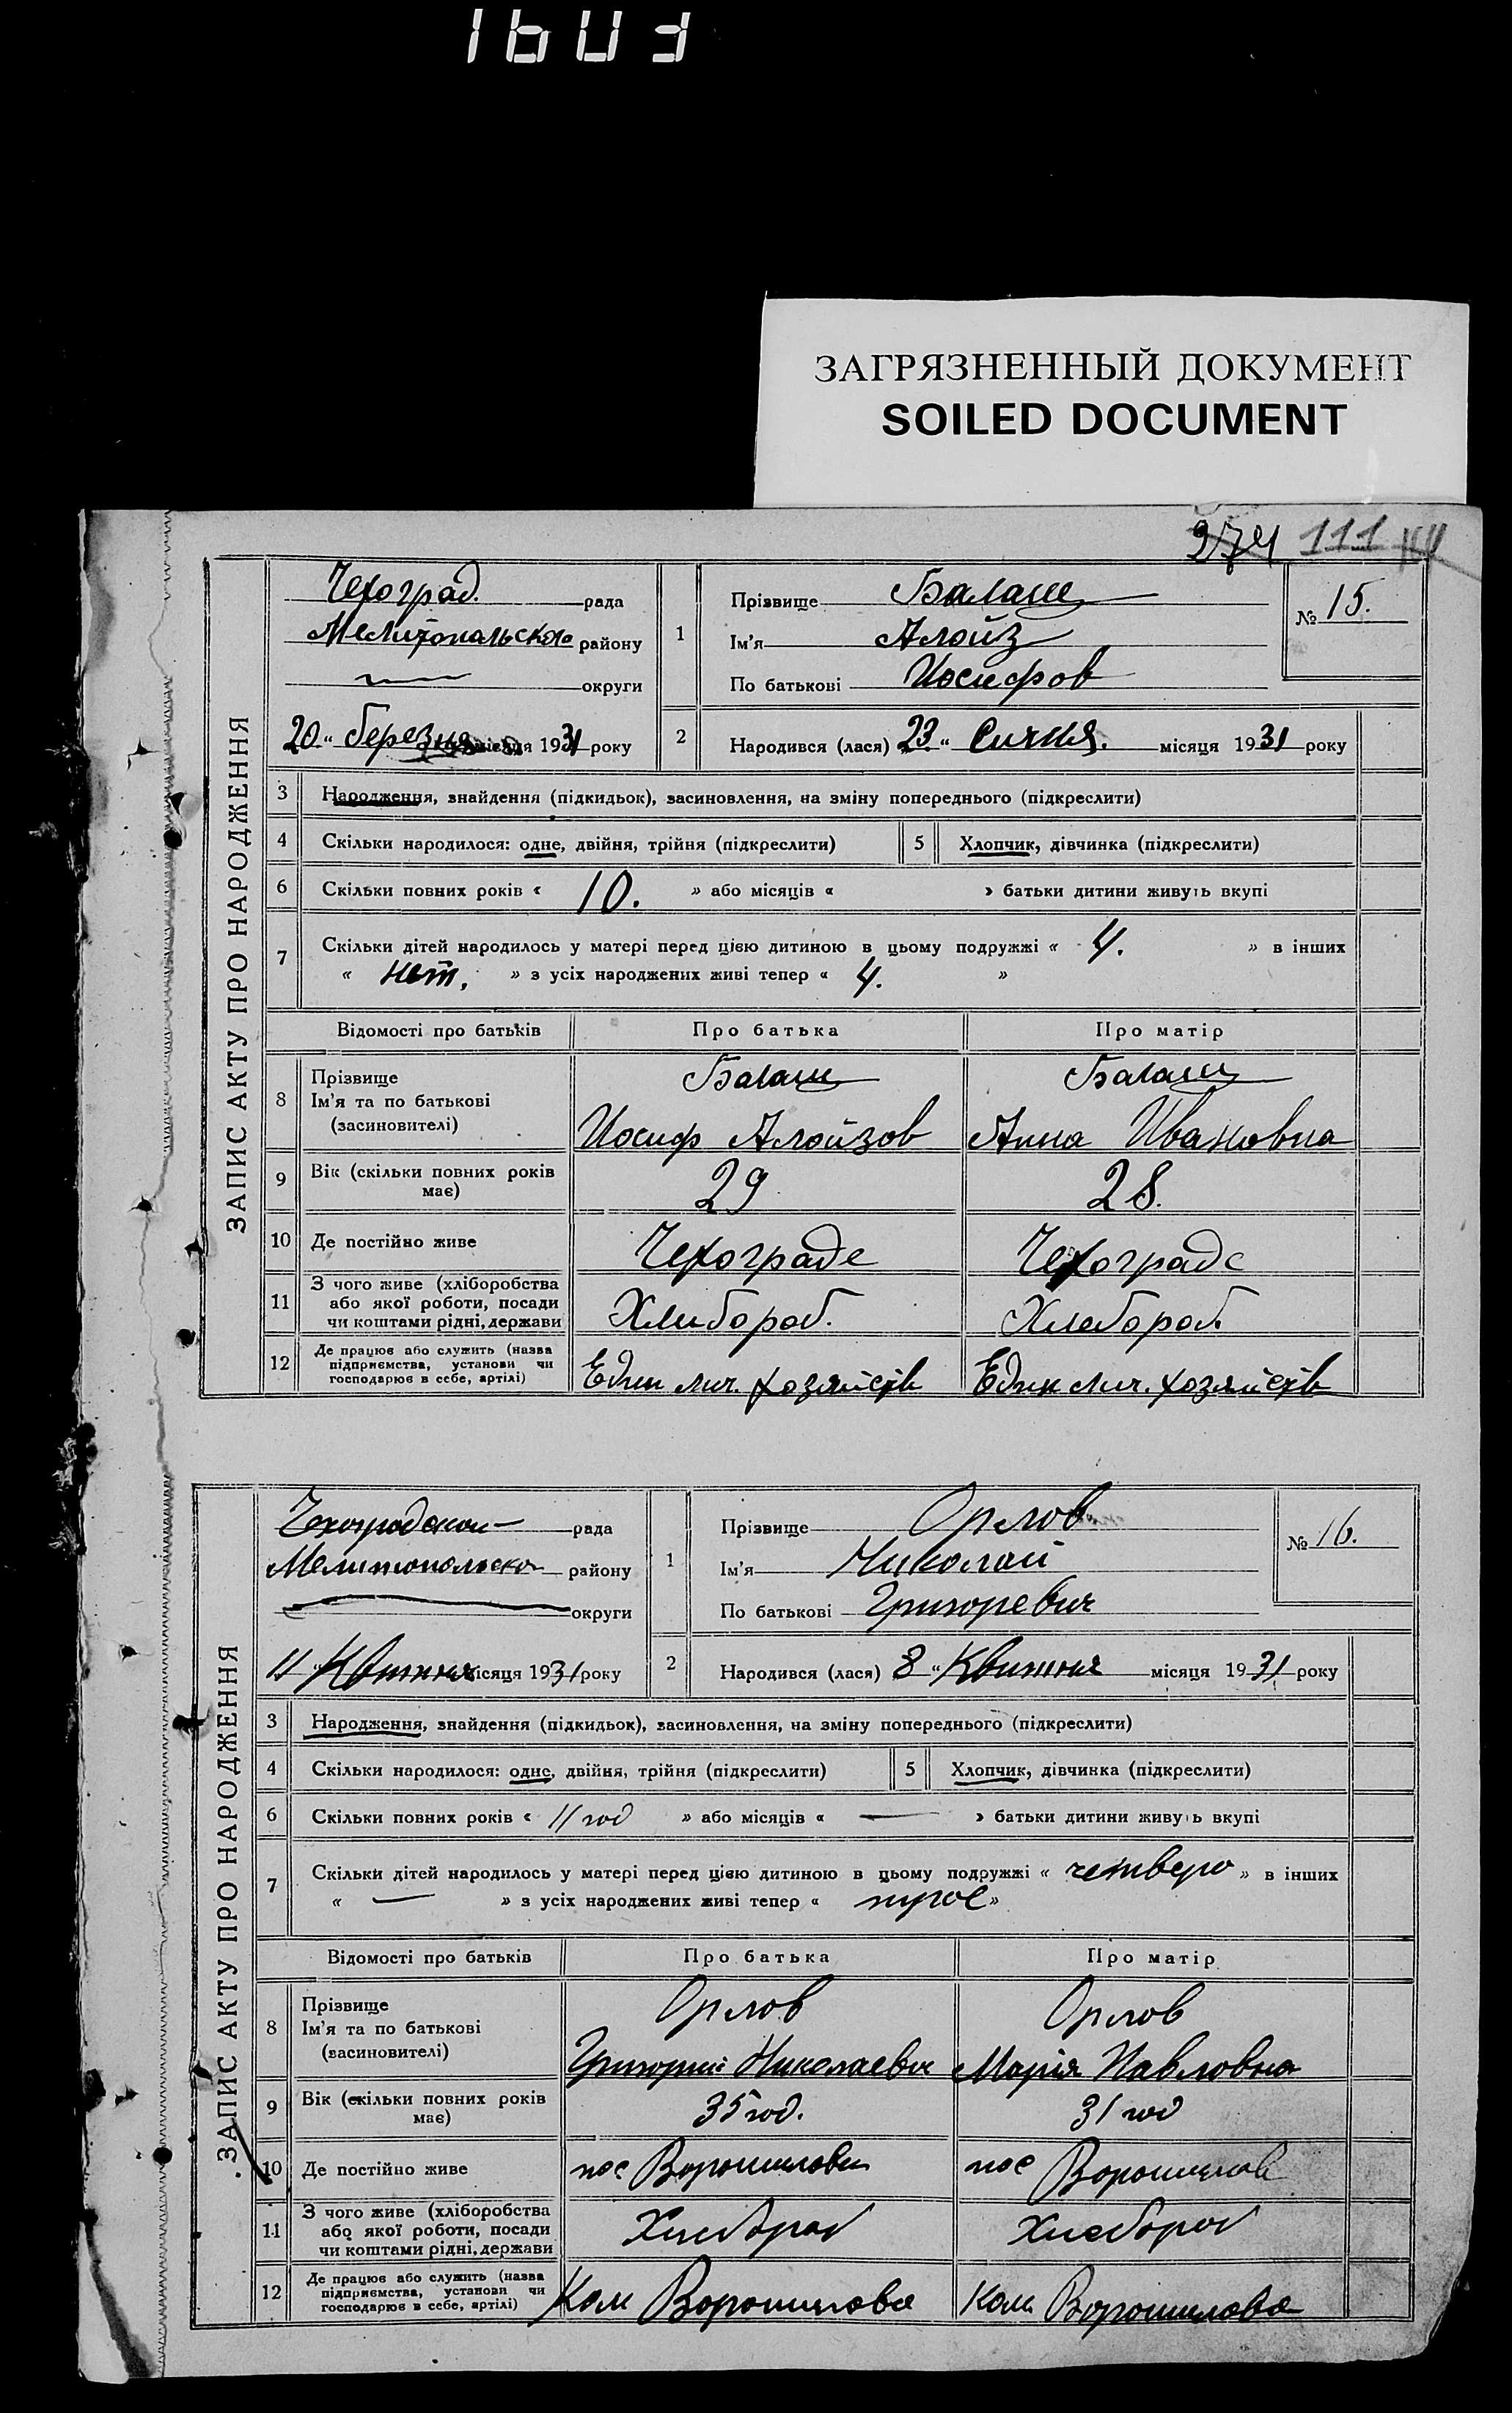 1603
ЗАГРЯЗНЕННЫЙ ДОКУМЕНТ
SOILED DOCUMENT
274 111
ЗАПИС АКТУ ПРО НАРОДЖЕННЯ
Чехоград. рада
Мелитопольского району
округи
20 " березня місяця 1931 року
1 Прізвище Балаш
Ім'я Алойз
По батькові Иосифов
№ 15.
2 Народився (лася) 23 " Сичня. місяця 1931 року
3 Народження, знайдення (підкидьок), засиновлення, на зміну попереднього (підкреслити)
4 Скільки народилося: одне, двійня, трійня (підкреслити) 5 Хлопчик, дівчинка (підкреслити)
6 Скільки повних років « 10. » або місяців « » батьки дитини живуть вкупі
7 Скільки дітей народилось у матері перед цією дитиною в цьому подружжі « 4. » в інших
« нет. » з усіх народжених живі тепер « 4. »
Відомості про батьків Про батька Про матір
8 Прізвище Балаш Балаш
Ім'я та по батькові
(засиновителі) Иосиф Алойзов Анна Ивановна
9 Вік (скільки повних років має) 29 28.
10 Де постійно живе Чехограде Чехограде
11 З чого живе (хліборобства
або якої роботи, посади Хлибороб. Хлебороб.
чи коштами рідні, держави
12 Де працює або служить (назва
підприємства, установи чи
господарює в себе, артілі) Един лич. хозяйств Един лич. хозяйств
ЗАПИС АКТУ ПРО НАРОДЖЕННЯ
Чехоградской рада
Мелитопольско району
округи
11 Квитня місяця 1931 року
1 Прізвище Орлов
Ім'я Николай
По батькові Григоревич
№ 16.
2 Народився (лася) 8 " Квитня місяця 1931 року
3 Народження, знайдення (підкидьок), засиновлення, на зміну попереднього (підкреслити)
4 Скільки народилося: одне, двійня, трійня (підкреслити) 5 Хлопчик, дівчинка (підкреслити)
6 Скільки повних років « 11 год » або місяців « — » батьки дитини живуть вкупі
7 Скільки дітей народилось у матері перед цією дитиною в цьому подружжі « четверо » в інших
« — » з усіх народжених живі тепер « »
Відомості про батьків Про батька Про матір
8 Прізвище Орлов Орлов
Ім'я та по батькові
(засиновителі) Григорий Николаевич Марія Павловна
9 Вік (скільки повних років має) 35 год. 31 год
10 Де постійно живе пос Ворошилова пос Ворошилов
11 З чого живе (хліборобства
або якої роботи, посади Хлебороб Хлебороб
чи коштами рідні, держави
12 Де працює або служить (назва
підприємства, установи чи
господарює в себе, артілі) Ком Ворошилова Ком Ворошилова